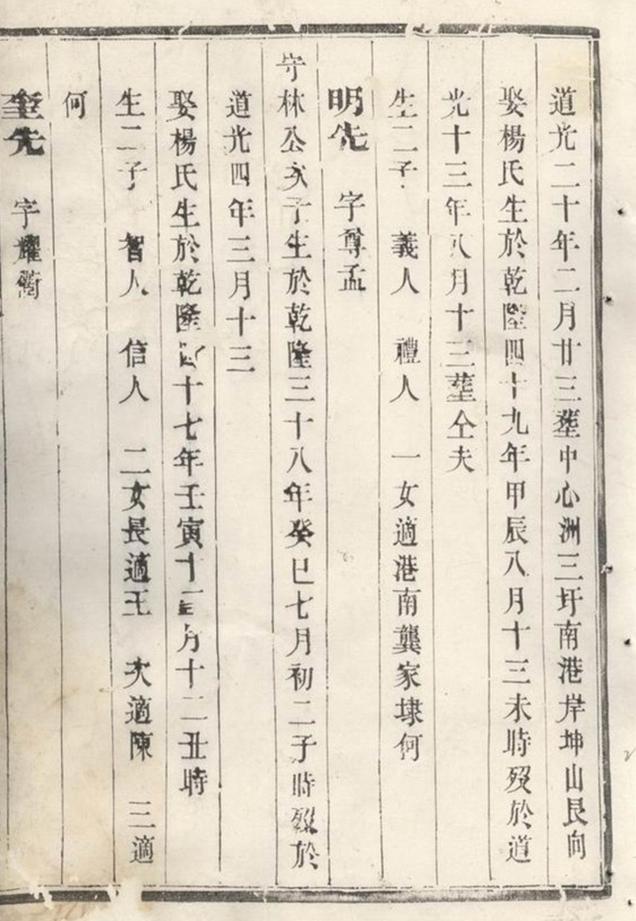 道光二十年二月廿三塟中心洲三圩南港岸坤山艮向
娶楊氏生於乾隆四十九年甲辰八月十三未時歿於道
光十三年八月十三塟仝夫
生二子 義人 禮人 一女適港南龔家埭何
明先 字尊孟
守林公次子生於乾隆三十八年癸巳七月初二子時歿於
道光四年三月十三
娶楊氏生於乾隆四十七年壬寅十一月十二丑時
生二子 智人 信人 二女長適王 次適陳 三適
何
奎先 字耀衢